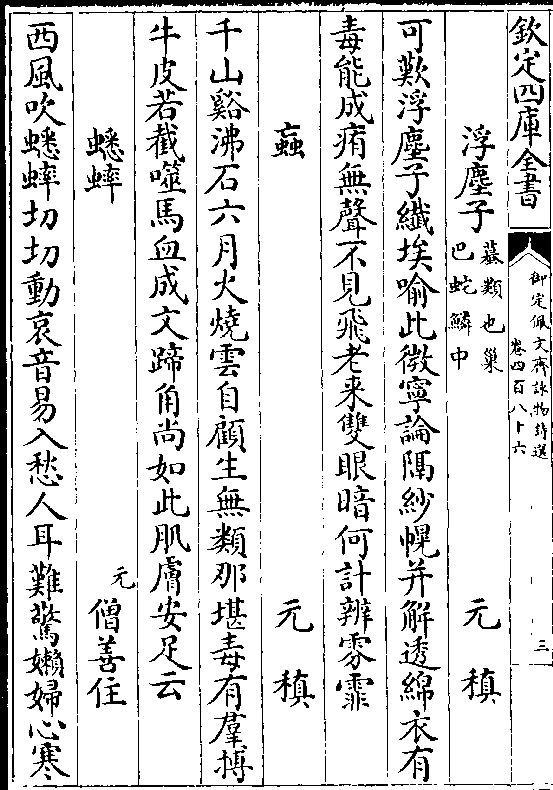 欽定四庫全書
御定佩文齋詠物詩選
卷四百八十六
三
浮塵子
蟇類也巢
巴蛇鱗中
元稹
可歎浮塵子纖埃喻此微寧論隔紗幌并解透綿衣有
毒能成痏無聲不見飛老来雙眼暗何計辨雰霏
蝱
元稹
千山谿沸石六月火燒雲自顧生無類那堪毒有羣摶
牛皮若截噬馬血成文蹄角尚如此肌膚安足云
蟋蟀
元
僧善住
西風吹蟋蟀切切動哀音易入愁人耳難驚嬾婦心寒